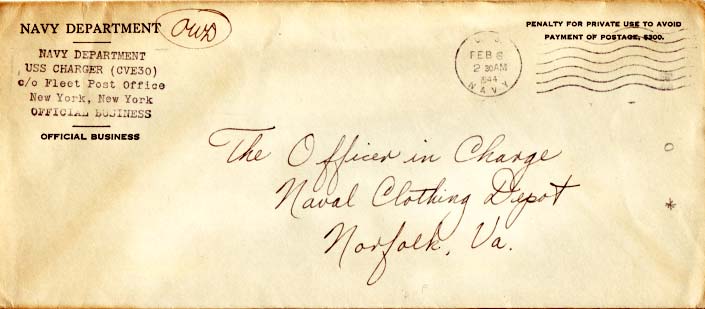 NAVY DEPARTMENT
OWD
NAVY DEPARTMENT
USS CHARGER (CVE30)
c/o Fleet Post Office
New York, New York
OFFICIAL BUSINESS
OFFICIAL BUSINESS
U. S.
FEB 6
2 30 AM
1944
NAVY
PENALTY FOR PRIVATE USE TO AVOID
PAYMENT OF POSTAGE, $300.
The Officer in Charge
Naval Clothing Depot
Norfolk, Va.